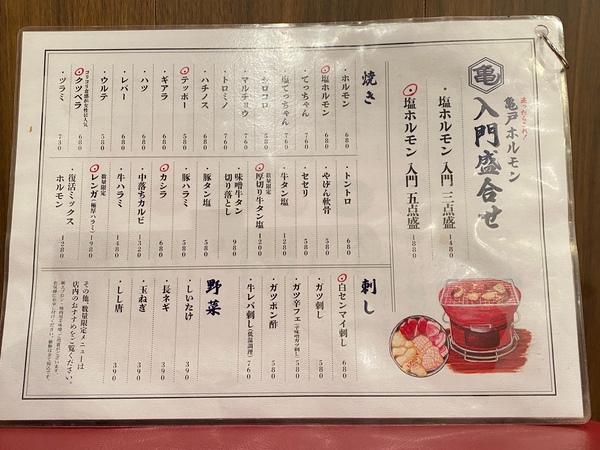 亀
亀戸ホルモン
入門盛合せ
・塩ホルモン入門 三点盛 1480
・塩ホルモン入門 五点盛 1880
焼き
・ホルモン 680
・塩ホルモン 680
・てっちゃん 760
・塩てっちゃん 760
・シロコロ
・マルチョウ 760
・トロミノ 760
・ハチノス 680
・テッポー 580
・ギアラ 680
・ハツ 680
・レバー 680
・ウルテ 580
コリコリ食感が女性に人気
・クツベラ 680
・ツラミ 730
・トントロ 680
・やげん軟骨 580
・セセリ 580
・牛タン塩 1280
数量限定
・厚切り牛タン塩 1200
味噌牛タン
切り落とし 980
・豚タン塩 580
・豚ハラミ 580
・カシラ 680
・中落ちカルビ 1320
・牛ハラミ 1480
数量限定
・レンガ(極厚ハラミ) 1980
・復活ミックス
ホルモン 1280
刺し
・白センマイ刺し 680
・ガツ刺し 580
・ガツ辛フェ(辛味噌ガツ刺し) 580
・ガツポン酢 580
・牛レバ刺し(低温調理) 760
野菜
・しいたけ 390
・長ネギ 390
・玉ねぎ 390
・しし唐 390
その他、数量限定メニューは
店内のおすすめをご覧ください。